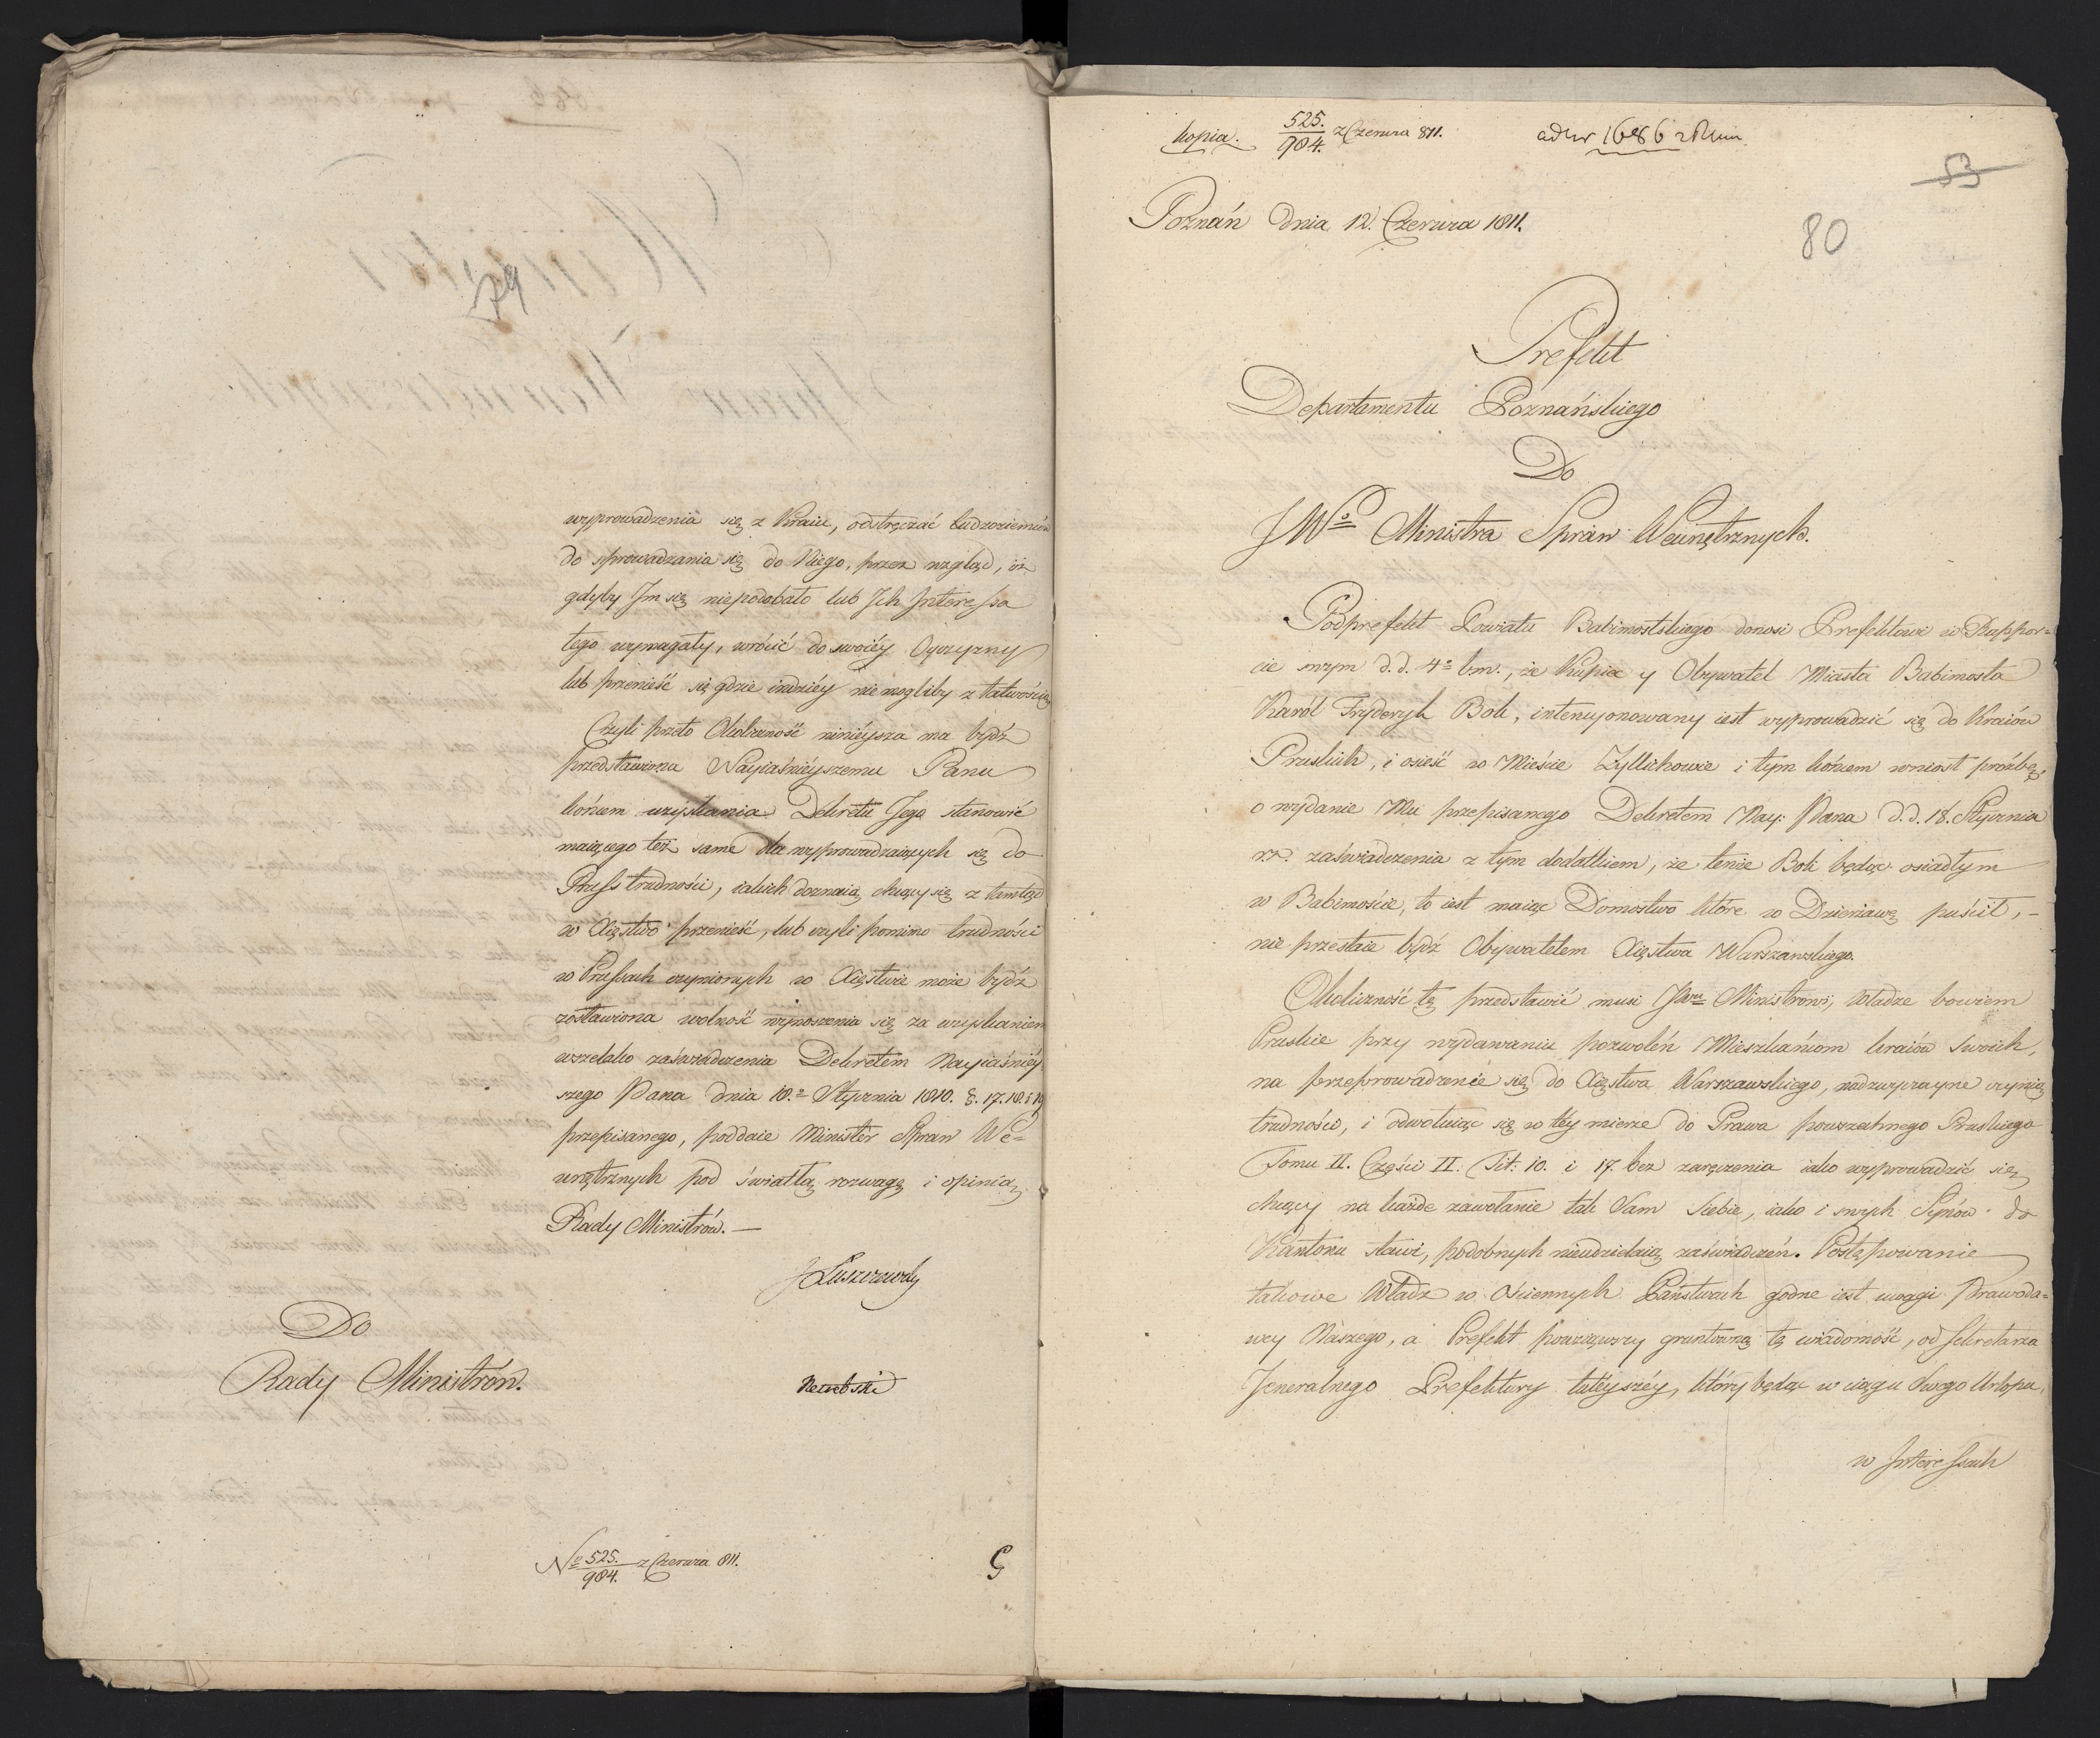 79
wyprowadzenia się z Kraiu, odstręczać Cudzoziemców
do sprowadzania się do Niego, przez wzgląd, iż
gdyby Im się niepodobało lub Ich Interessa
tego wymagały, wrócić do swoiéy Oyczyzny
lub przenieść się gdzie indziéy nie mogliby z łatwością
Czyli przeto Okoliczność ninieysza ma bydź
przedstawiona Nayiaśnieyszemu Panu
końcem uzyskania Dekretu Jego stanowić
maiącego też same dla wyprowadzaiących się do
Pruss trudności, iakich doznaią chcący się z tamtąd
w Xięstwo przenieść, lub czyli pomimo trudności
w Prussach czynionych w Xięstwie może bydź
zostawiona wolność wynoszenia się za uzyskaniem
wszelako zaświadczenia Dekretem Nayiaśniéy
szego Pana dnia 10.º Stycznia 1810. §. 17. 18. i 19
przepisanego, poddaie Minister Spraw We-
wnętrznych pod światłą rozwagę i opinią
Rady Ministrów. —
J Łuszczewski
Do
Rady Ministrów.
Nº 525./904. z Czerwca 811.
kopia. 525./904. z Czerwca 811. ad Nr 1686
53
80
Poznań dnia 12. Czerwca 1811.
Prefekt
Departamentu Poznańskiego
Do
JWº Ministra Spraw Wewnętrznych.
Podprefekt Powiatu Babimostskiego donosi Prefektowi w Rappor=
cie swym d. d. 4º b. m., że Kupiec y Obywatel Miasta Babimosta
Karól Fryderyk Bok, intencyonowany iest wyprowadzić się do Kraiów
Pruskich, i osieść w Mieście Zyllichowie i tym końcem wniosł proźbę,
o wydanie Mu przepisanego Dekretem Nay: Pana d. d. 18. Stycznia
r. z. zaświadczenia z tym dodatkiem, że tenże Bok będąc osiadłym
w Babimoście, to iest maiąc Domostwo które w Dzierżawę puścił, -
nie przestaie bydź Obywatelem Xięstwa Warszawskiego.
Okoliczność tę przedstawić musi JWu Ministrowi, Władze bowiem
Pruskie przy wydawaniu pozwoleń Mieszkańcom kraiów swoich,
na przeprowadzenie się do Xięstwa Warszawskiego, nadzwyczayne czynią
trudności, i odwołuiąc się w téy mierze do Prawa powszechnego Pruskiego
Tomu II. Części II. Tit: 10. i 17. bez zaręczenia iako wyprowadzić się
chcący na każde zawołanie tak Sam Siebie, iako i swych Synów do
Kantonu stawi, podobnych nieudzielaią zaświadczeń. Postępowanie
takowe Władz w Ościennych Państwach godne iest uwagi Prawoda=
wcy Naszego, a Prefekt powziąwszy gruntowną tę wiadomość, od Sekretarza
Jeneralnego Prefektury tuteyszéy, który będąc w ciągu Swego Urlopu,
w Interessach